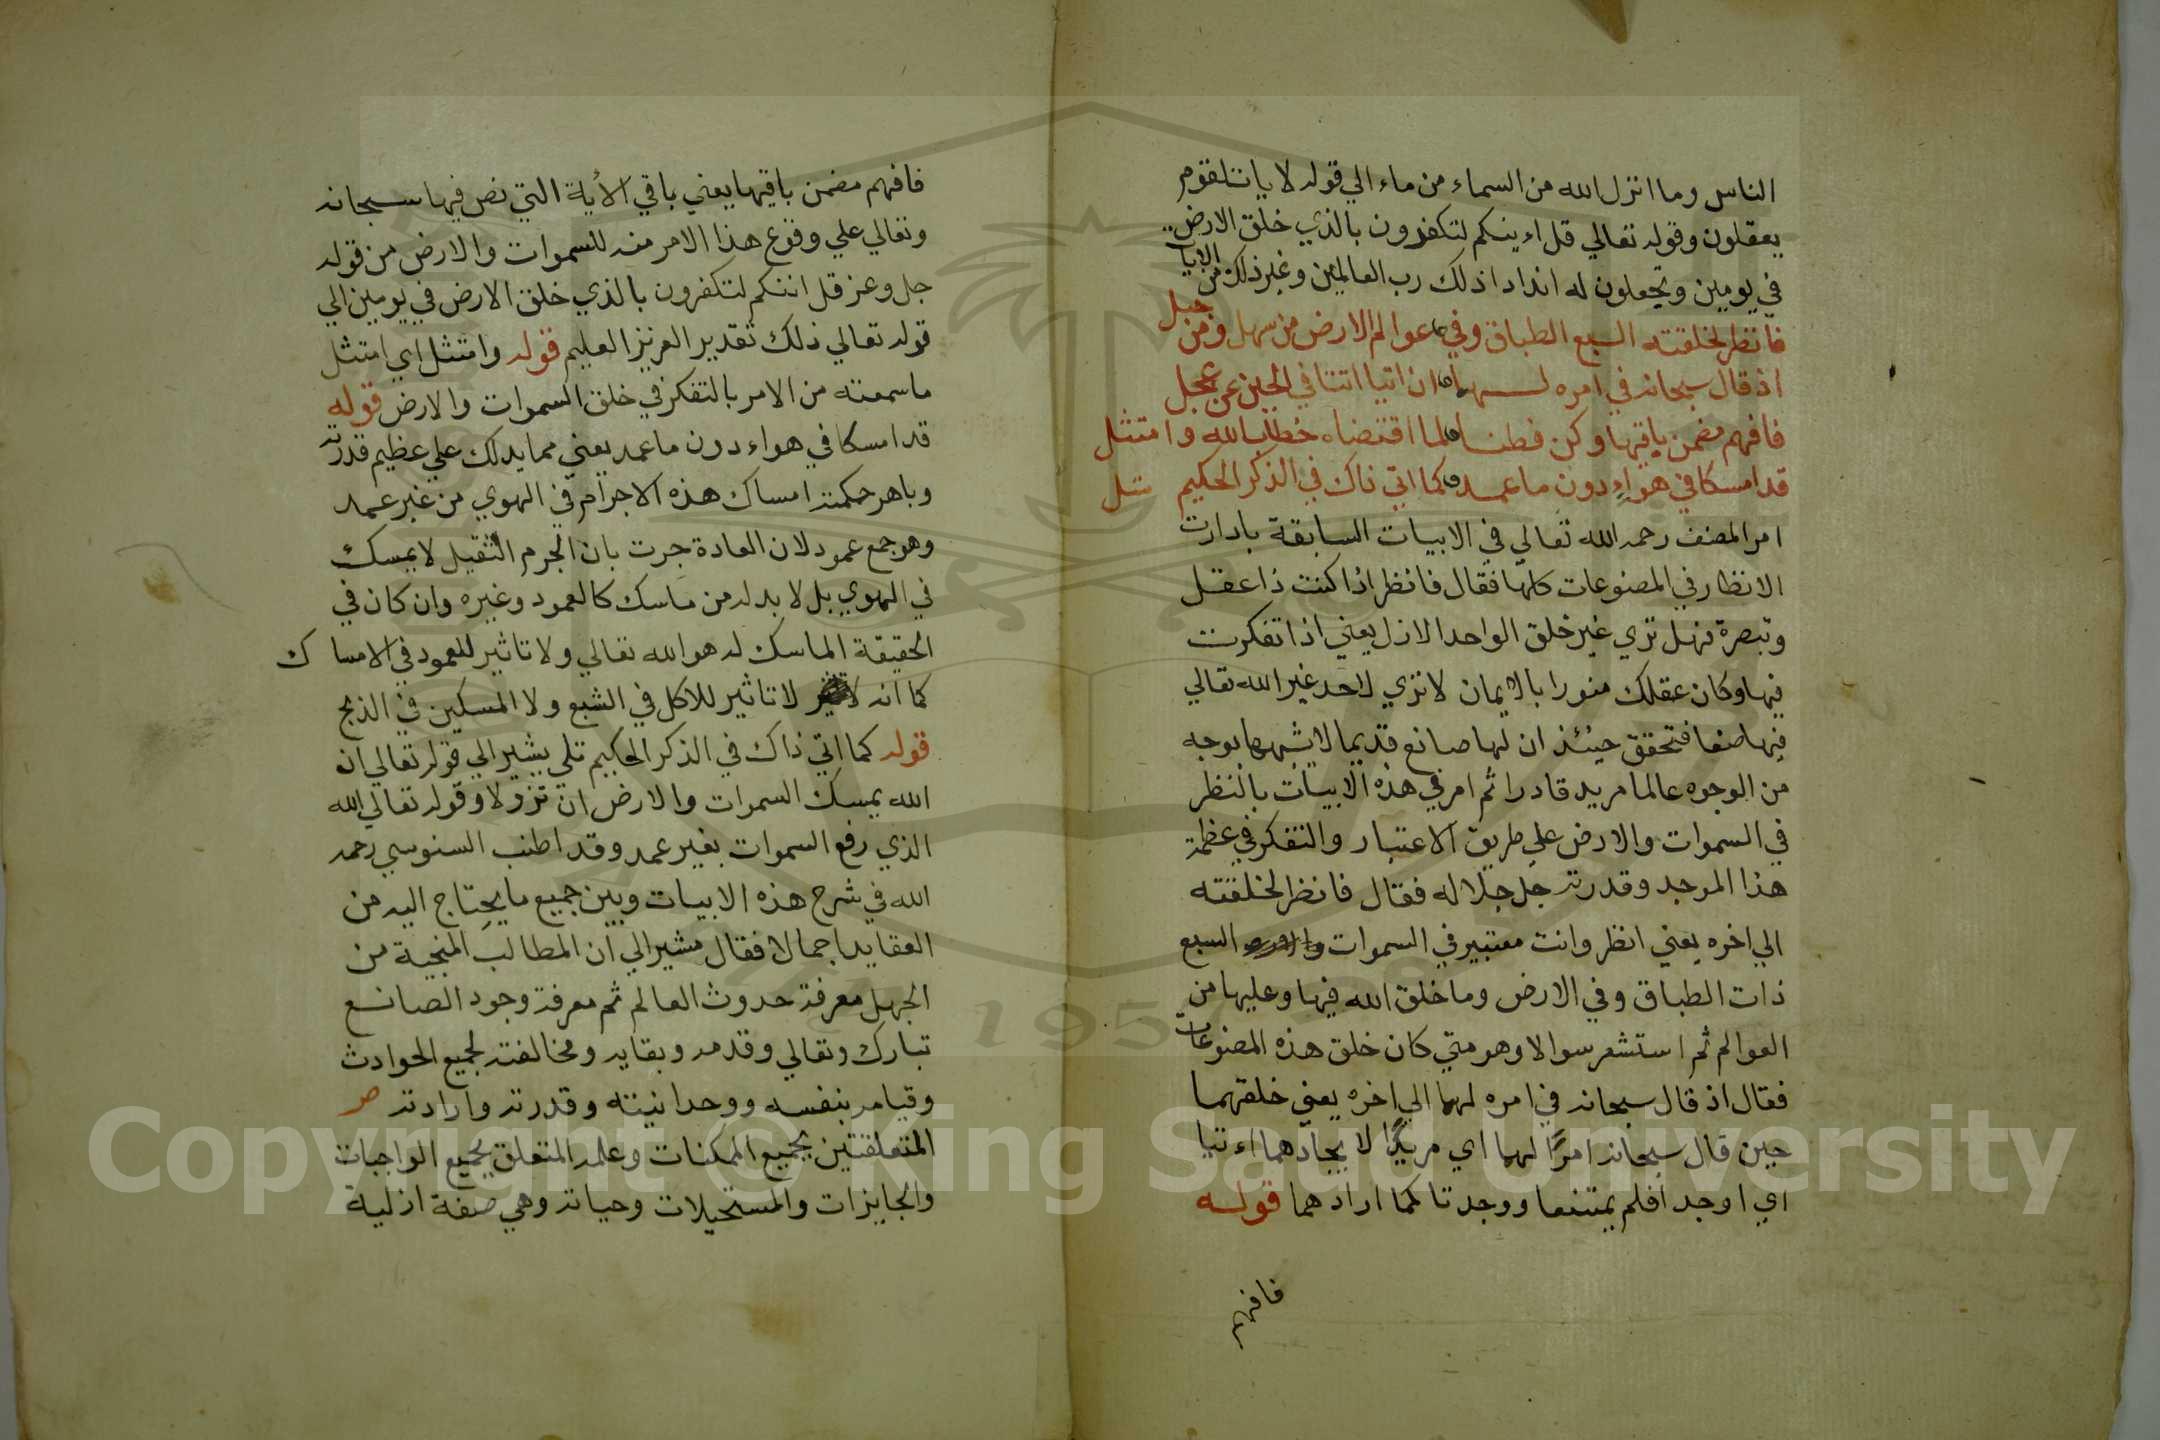 الناس وما انزل الله من السماء من ماء الي قوله لايات لقوم
يعقلون وقوله تعالي قل اءينكم لتكفرون بالذي خلق الارض
في يومين وتجعلون له اندادا ذلك رب العالمين وغير ذلك من الايات
فانظر لخلقته السبع الطباق وفي عوالم الارض من سهل ومن جبل
اذ قال سبحانه في امره لهما ان اتيا اتتا في الحين عن عجل
فافهم مضمن باقيها وكن فطنا لما اقتضاه خطاب الله وامتثل
قد امسكا في هواء دون ما عمد كما اتي ذاك في الذكر الحكيم تتل
امر المصنف رحمه الله تعالي في الابيات السابقة بادارت
الانظار في المصنوعات كلها فقال فانظر اذا كنت ذا عقل
وتبصرة فهل تري غير خلق الواحد الازل يعني اذا تفكرت
فيها وكان عقلك منورا بالايمان لا تري لاحد غير الله تعالي
فيها صنعا فتحقق حينئذ ان لها صانع قديما لا يشبهها بوجه
من الوجوه عالما مريد قادرا ثم امر في هذه الابيات بالنظر
في السموات والارض علي طريق الاعتبار والتفكر في عظمة
هذا الموجد وقدرته جل جلاله فقال فانظر لخلقته
الي اخره يعني انظر وانت معتبير في السموات السبع
ذات الطباق وفي الارض وما خلق الله فيها وعليها من
العوالم ثم استشعر سوالا وهو متي كان خلق هذه المصنوعات
فقال اذ قال سبحانه في امره لهما الي اخره يعني خلقهما
حين قال سبحانه امرًا لهما اي مريدًا لايجادهما اءتيا
اي اوجدا فلم يمتنعا ووجدتا كما ارادهما قوله
فافهم
فافهم مضمن باقيها يعني باقي الأية التي نص فيها سبحانه
وتعالي علي وقوع هذا الامر منه للسموات والارض من قوله
جل وعز قل ائنكم لتكفرون بالذي خلق الارض في يومين الي
قوله تعالي ذلك تقدير العزيز العليم قوله وامتثل اي امتثل
ما سمعته من الامر بالتفكر في خلق السموات والارض قوله
قد امسكا في هواء دون ما عمد يعني مما يدلك علي عظيم قدرته
وباهر حكمته امساك هذه الاجرام في الهوي من غير عمد
وهو جمع عمود لان العادة جرت بان الجرم الثقيل لا يمسك
في الهوي بل لا بد له من ماسك كالعمود وغيره وان كان في
الحقيقة الماسك له هو الله تعالي ولا تاثير للعمود في الامساك
كما انه لا تاثير للاكل في الشبع ولا المسكين في الذبح
قوله كما اتي ذاك في الذكر الحكيم تلي يشير الي قوله تعالي ان
الله يمسك السموات والارض ان تزولا وقوله تعالي الله
الذي رفع السموات بغير عمد وقد اطنب السنوسي رحمه
الله في شرح هذه الابيات وبين جميع ما يحتاج اليه من
العقايد اجمالا فقال مشير الي ان المطالب المنجية من
الجهل معرفة حدوث العالم ثم معرفة وجود الصانع
تبارك وتعالي وقدمه وبقايه ومخالفته لجميع الحوادث
وقيامه بنفسه ووحدانيته وقدرته وارادته
المتعلقتين بجميع الممكنات وعلمه المتعلق بجميع الواجبات
والجايزات والمستحيلات وحياته وهي صفة ازلية
Copyright © King Saud University
1957